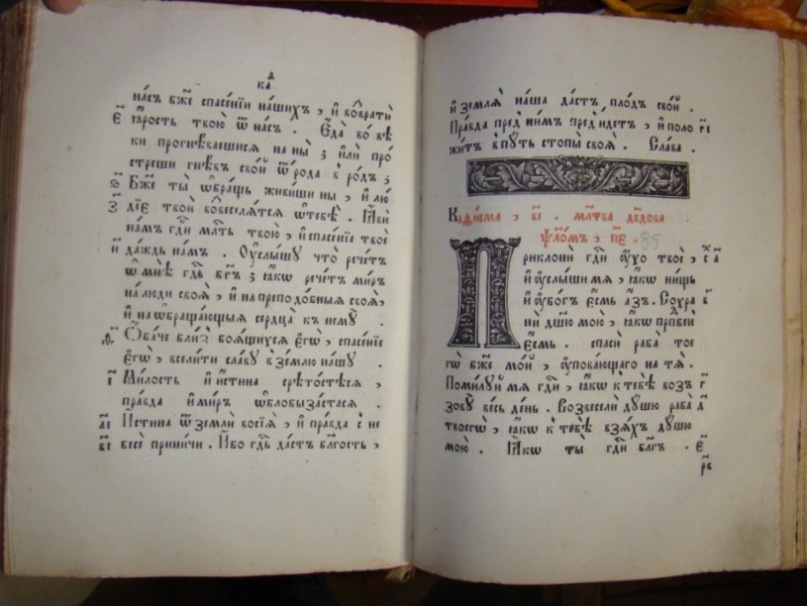 ка҃
на́съ бж҃е спасе́нїи на́шихъ , и҆ ѿвратѝ
є҃ ꙗ҆́рость твою̀ ѿ на́съ . Є҆да̀ во вѣ́
ки прогнѣ́ваешися на ны̀ ; и҆лѝ про
стрешѝ гнѣ́въ сво́й ѿ ро́да в ро́дъ ;
з҃ Бж҃е ты̀ ѡ҆бра́щь живи́ши ны̀ , и҆ лю́
н҃ дїе твоѝ возвеселя́тся ѡ҆ тебѣ̀ . Ꙗ҆вѝ
на́мъ гдⷭ҇и млⷭ҇ть твою̀ , и҆ спасе́нїе твоѐ
и҆ да́ждь на́мъ . Оу҆слы́шу что̀ рече́тъ
ѡ҆ мнѣ̀ гдⷭ҇ь бг҃ъ ; ꙗ҆́кѡ рече́тъ ми́ръ
на лю́ди своя̀ , и҆ на преподо́бныя своя̀ ,
и҆ на ѡ҆браща́ющыя сердца̀ к нему̀ .
Ѻ҆ба́че бли́з̾ боя́щихся є҆гѡ̀ , спасе́нїе
є҆гѡ̀ , всели́ти сла́ву в зе́млю на́шу .
і҃ Ми́лость и҆ и҆́стина срѣто́стѣся ,
пра́вда и҆ ми́ръ ѡ҆блобыза́стася .
а҃і И҆́стина ѿ землѝ восїя̀ , и҆ пра́вда с не
в҃і бесѐ прини́че . И҆́бо гдⷭ҇ь да́стъ бл҃гость ,
и҆ земля̀ на́ша да́стъ пло́дъ сво́й .
Пра́вда пред ни́мъ пред и́детъ , и҆ поло г҃і
жи́тъ в пу́ть стопы̀ своя̀ . Сла́ва .
Каѳи́сма , в҃і . мл҃тва дв҃дова
ѱало́мъ , п҃е . 85
Приклонѝ гдⷭ҇и оу҆́хо твоѐ , а҃
и҆ оу҆слы́ши мя̀ , ꙗ҆́кѡ ни́щь
и҆ оу҆бо́гъ є҆́смь а҆́зъ . Сохра в҃
нѝ дш҃ю мою̀ , ꙗ҆́кѡ прпⷣбенъ
є҆́смь . спасѝ раба̀ твое
гѡ̀ бж҃е мо́й , оу҆пова́ющаго на тя̀ .
Поми́луй мя̀ гдⷭ҇и , ꙗ҆́кѡ к тебѣ̀ воз̾ г҃
зову̀ ве́сь де́нь . Возвеселѝ ду́шю раба̀ д҃
твоегѡ̀ , ꙗ҆́кѡ к тебѣ̀ взя́хъ ду́шю
мою̀ . Ꙗ҆́кѡ ты̀ гдⷭ҇и бл҃гъ . є҃
р҃в